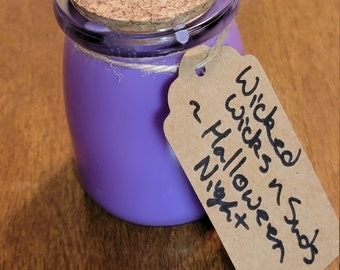 Wicked
Wicks n Suds
~ Halloween
Night